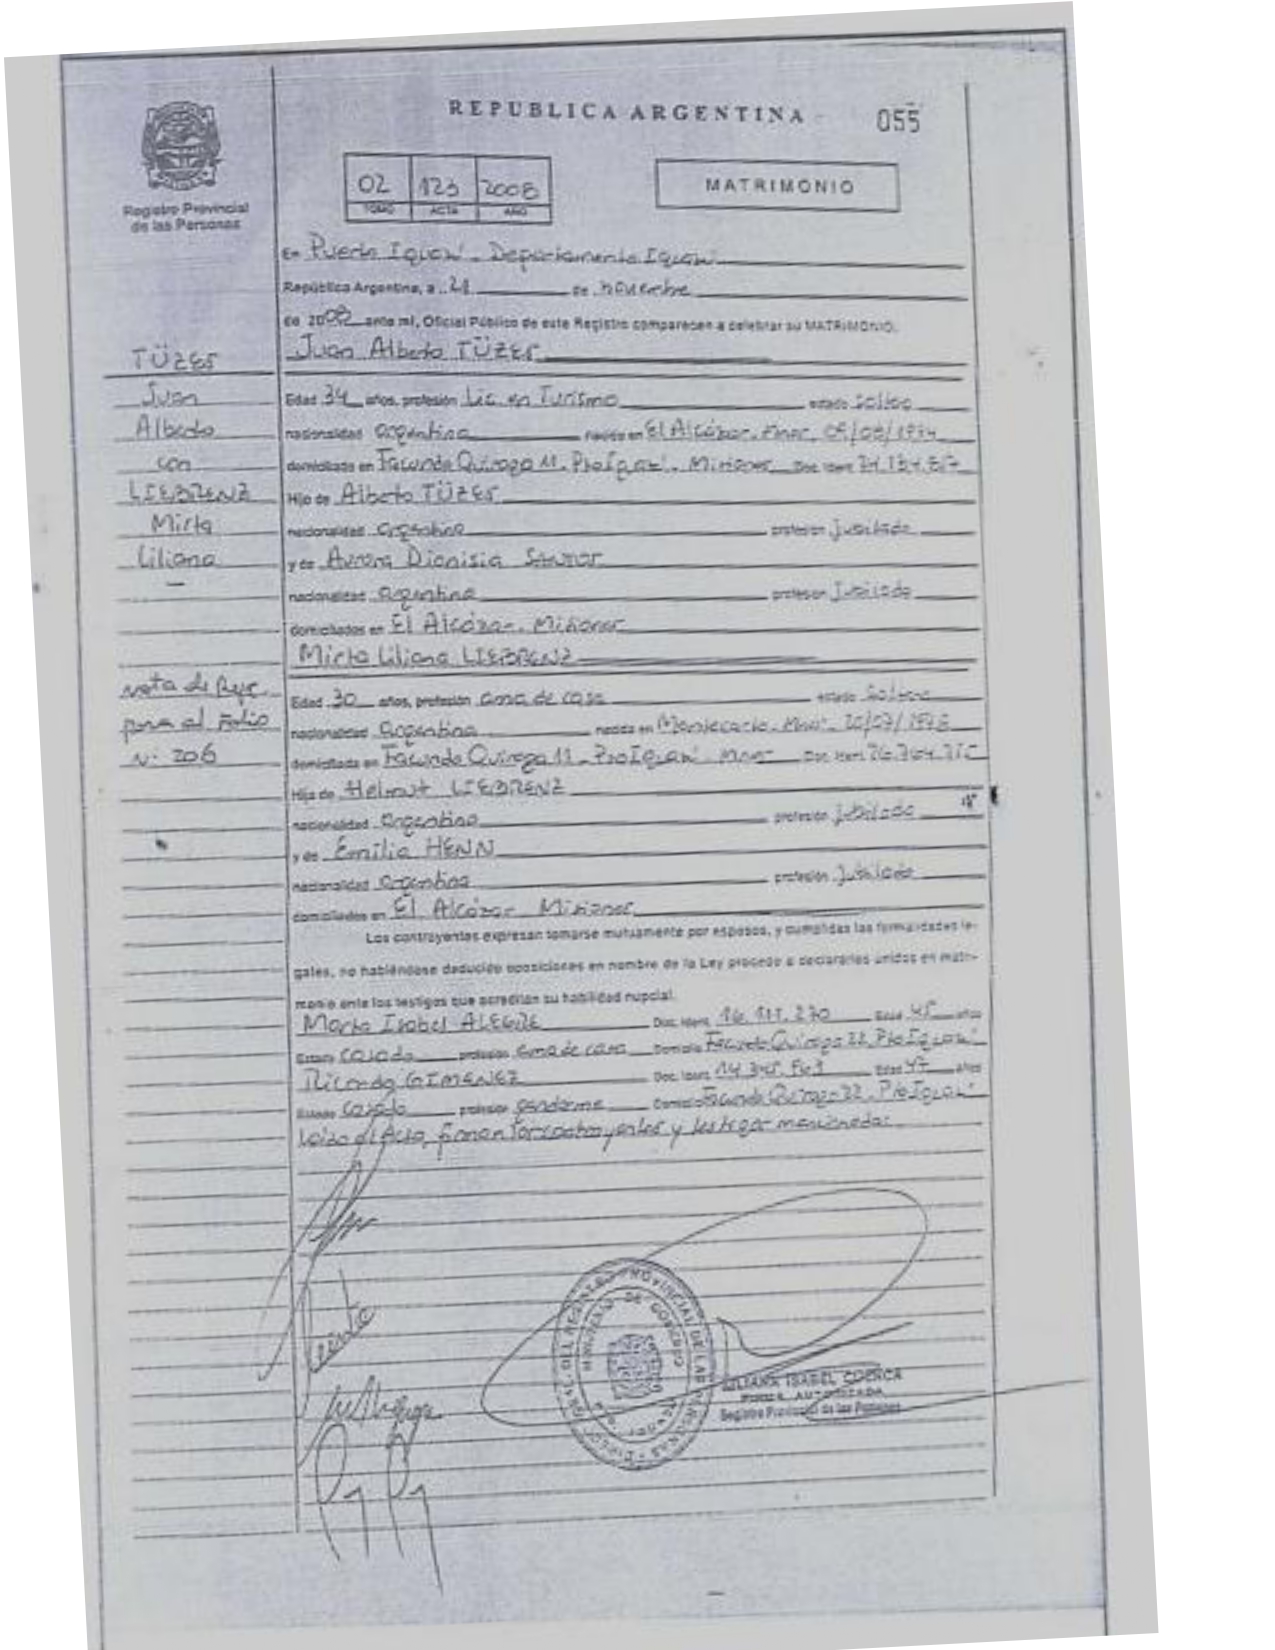 REPUBLICA ARGENTINA
055
Registro Provincial
de las Personas
02 123 2008
TOMO ACTA AÑO
MATRIMONIO
En Puerto Iguazú - Departamento Iguazú
República Argentina, a 21 de noviembre
de 2008 ante mí, Oficial Público de este Registro comparecen a celebrar su MATRIMONIO.
Juan Alberto TÜZES
Edad 34 años, profesión Lic. en Turismo estado Soltero
nacionalidad argentina nacido en El Alcázar
domiciliado en Facundo Quiroga 11 - Pto Iguazú - Misiones Doc. Ident.
Hijo de Alberto TÜZES
nacionalidad argentina profesión jubilado
y de Aurora Dionisia
nacionalidad argentina profesión jubilada
domiciliados en El Alcázar - Misiones
Mirta Liliana LIEBRENZ
Edad 30 años, profesión ama de casa estado Soltera
nacionalidad argentina nacida en Montecarlo
domiciliada en Facundo Quiroga 11 - Pto Iguazú - Doc. Ident.
Hija de Helmut LIEBRENZ
nacionalidad argentina profesión jubilado
y de Emilia HENN
nacionalidad argentina profesión jubilada
domiciliados en El Alcázar - Misiones
Los contrayentes expresan tomarse mutuamente por esposos, y cumplidas las formalidades le-
gales, no habiéndose deducido oposiciones en nombre de la Ley procedo a declararlos unidos en matri-
monio ante los testigos que acreditan su habilidad nupcial.
Marta Isabel ALEGRE Doc. Ident. Edad 45 años
Estado casada profesión ama de casa Domicilio Facundo Quiroga 22 - Pto Iguazú
Ricardo GIMENEZ Doc. Ident. Edad 47 años
Estado casado profesión gendarme Domicilio Facundo Quiroga 22 - Pto Iguazú
Leída el Acta, firman los contrayentes y testigos mencionados
TÜZES
Juan
Alberto
con
LIEBRENZ
Mirta
Liliana
Nota de
para al Folio
N: 206
MINISTERIO DE GOBIERNO
ISABEL CUENCA
FIRMA AUTORIZADA
Registro Provincial de las Personas